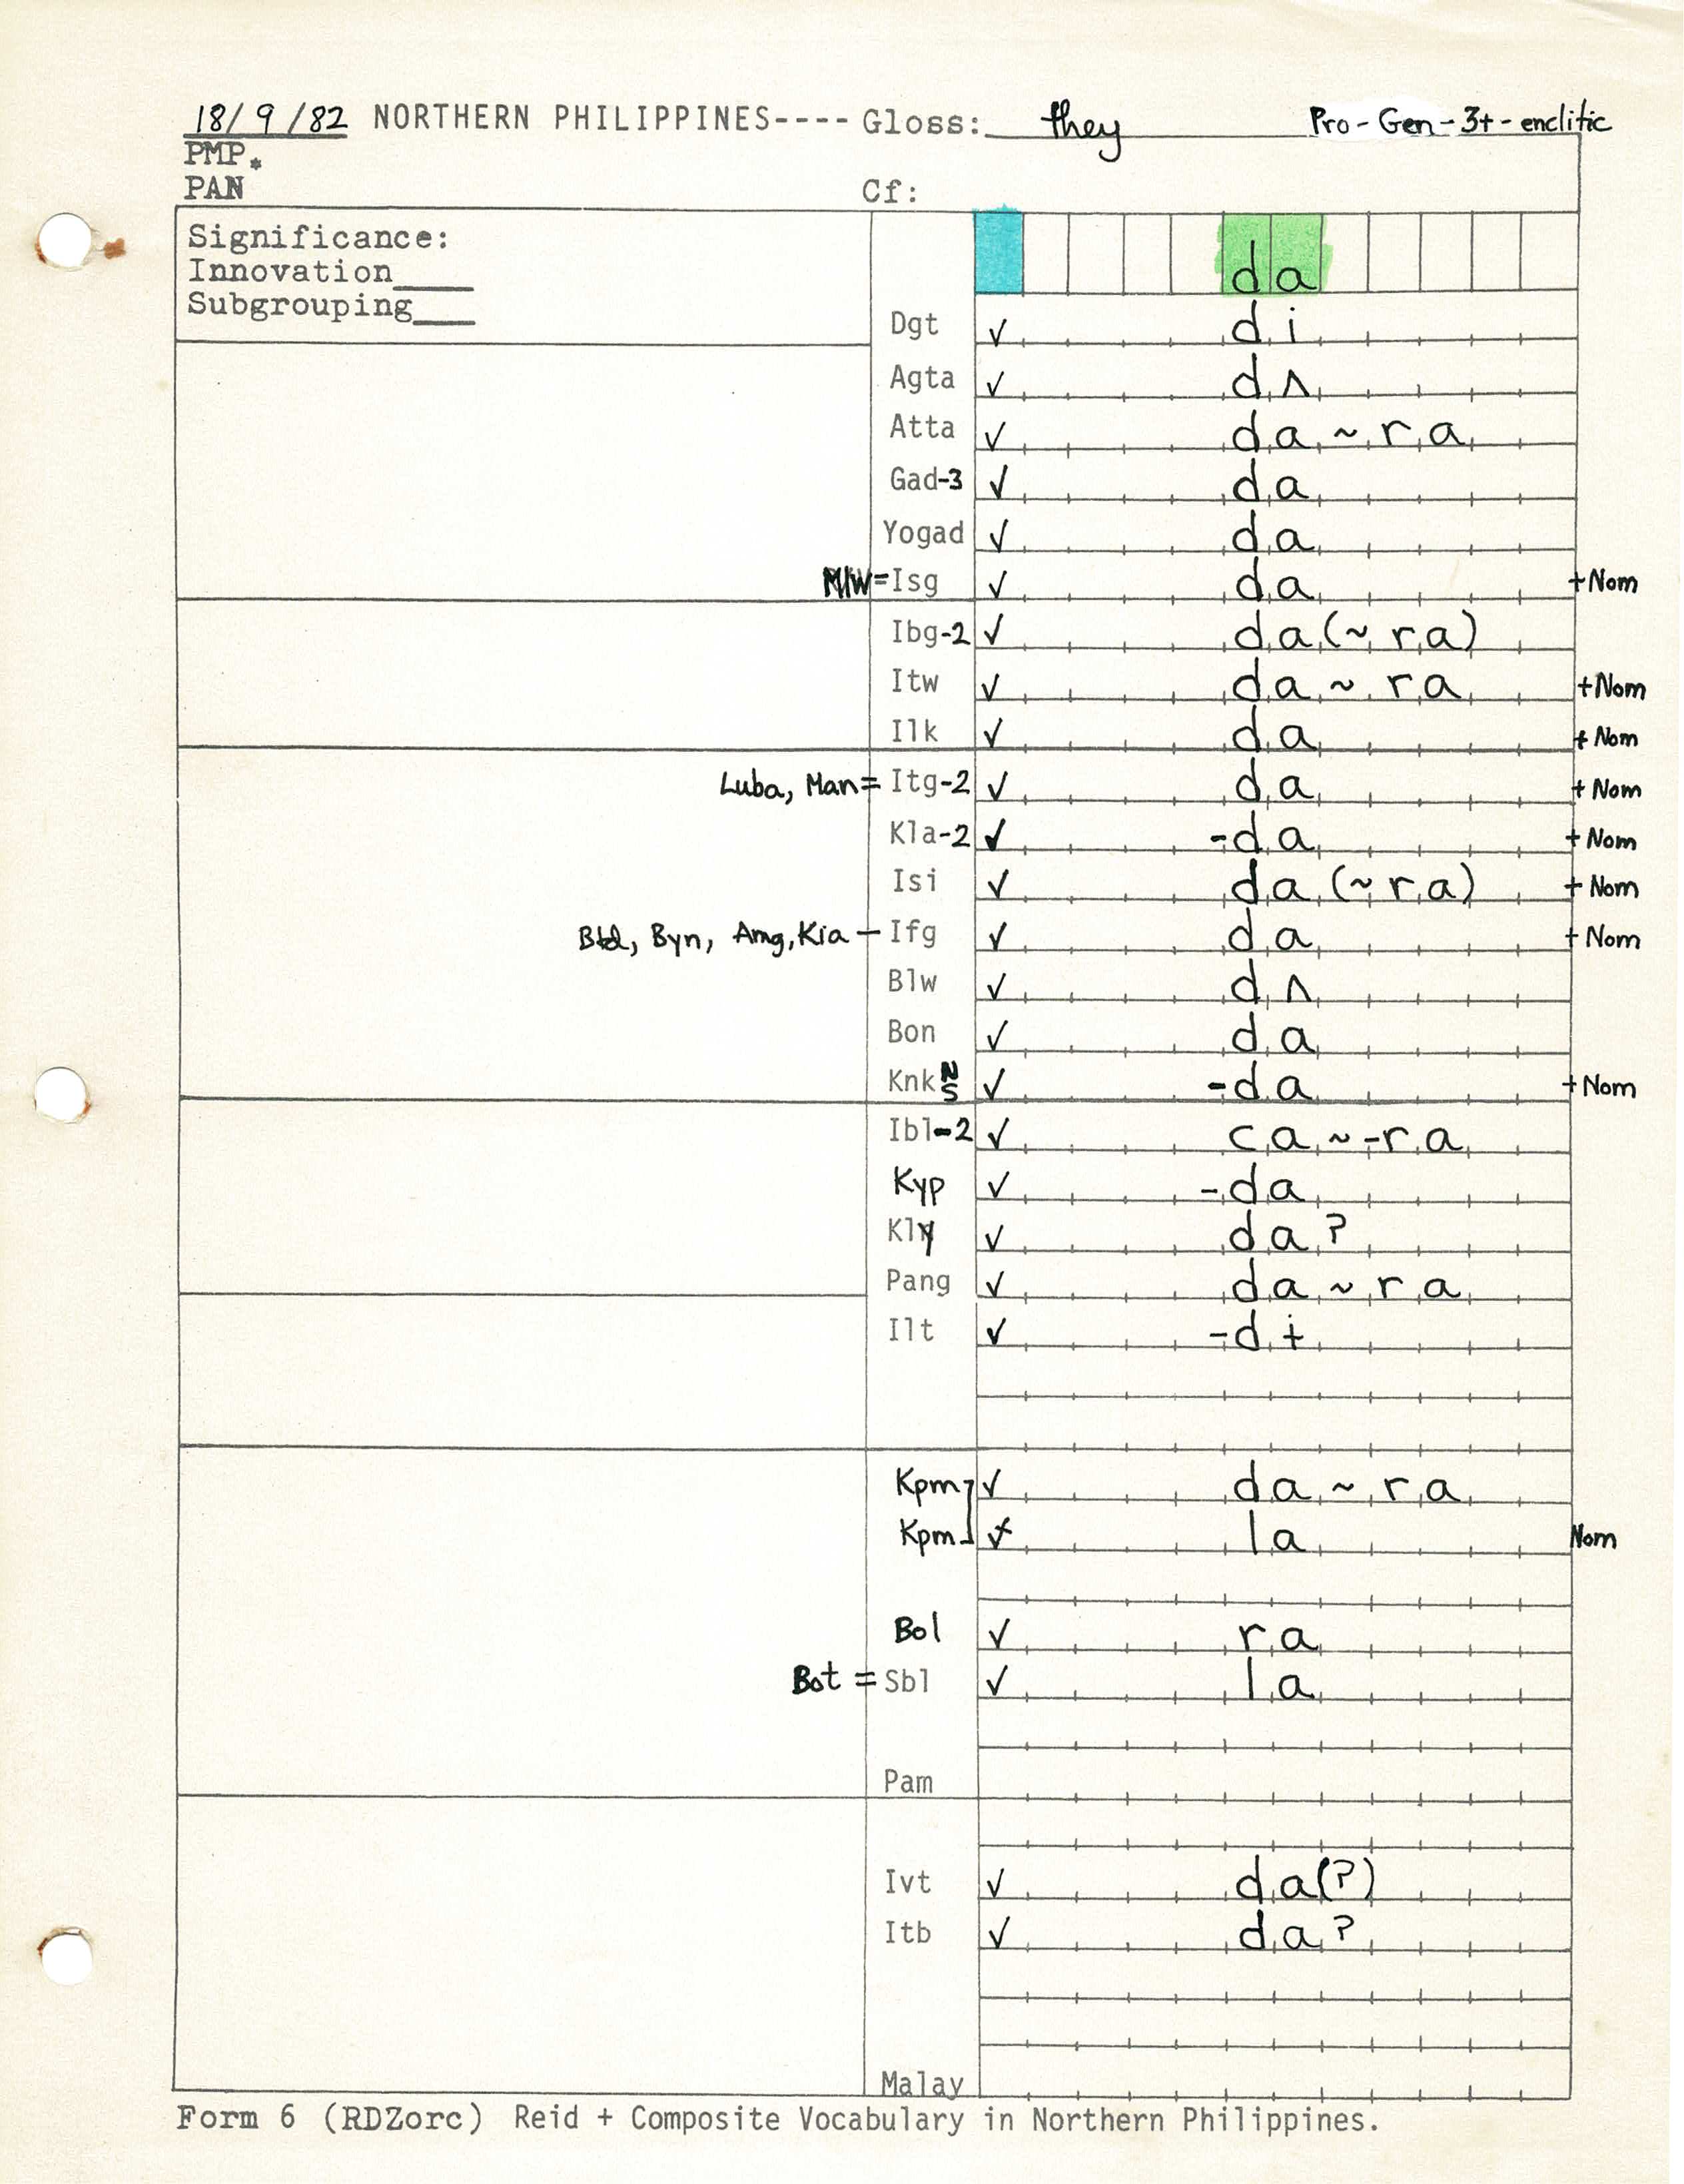 18/9/82 NORTHERN PHILIPPINES---- Gloss: they Pro-Gen-3+-enclitic
PMP*
PAN Cf:
Significance:
Innovation____
Subgrouping___
da
Dgt ✓ di
Agta ✓ dʌ
Atta ✓ da ~ ra
Gad-3 ✓ da
Yogad ✓ da
=Isg ✓ da +Nom
Ibg-2 ✓ da (~ ra)
Itw ✓ da ~ ra +Nom
Ilk ✓ da + Nom
Luba, Man = Itg-2 ✓ da + Nom
Kla-2 ✓ -da + Nom
Isi ✓ da (~ ra) + Nom
Byn, Amg, Kia - Ifg ✓ da + Nom
Blw ✓ dʌ
Bon ✓ da
Knk N S ✓ -da + Nom
Ibl-2 ✓ ca ~ -ra
Kyp ✓ -da
Kly ✓ da?
Pang ✓ da ~ ra
Ilt ✓ -dɨ
Kpm ✓ da ~ ra
Kpm la Nom
Bol ✓ ra
Bot = Sbl ✓ la
Pam
Ivt ✓ da(?)
Itb ✓ da?
Malay
Form 6 (RDZorc) Reid + Composite Vocabulary in Northern Philippines.